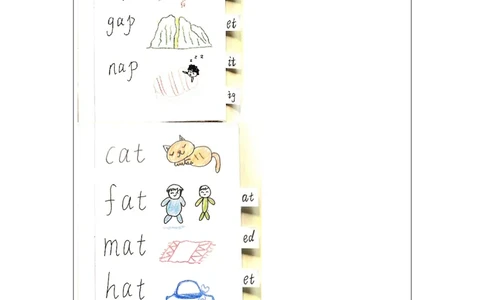 gap
et
nap
z z z
it
ig
cat
fat
at
mat
ed
hat
et